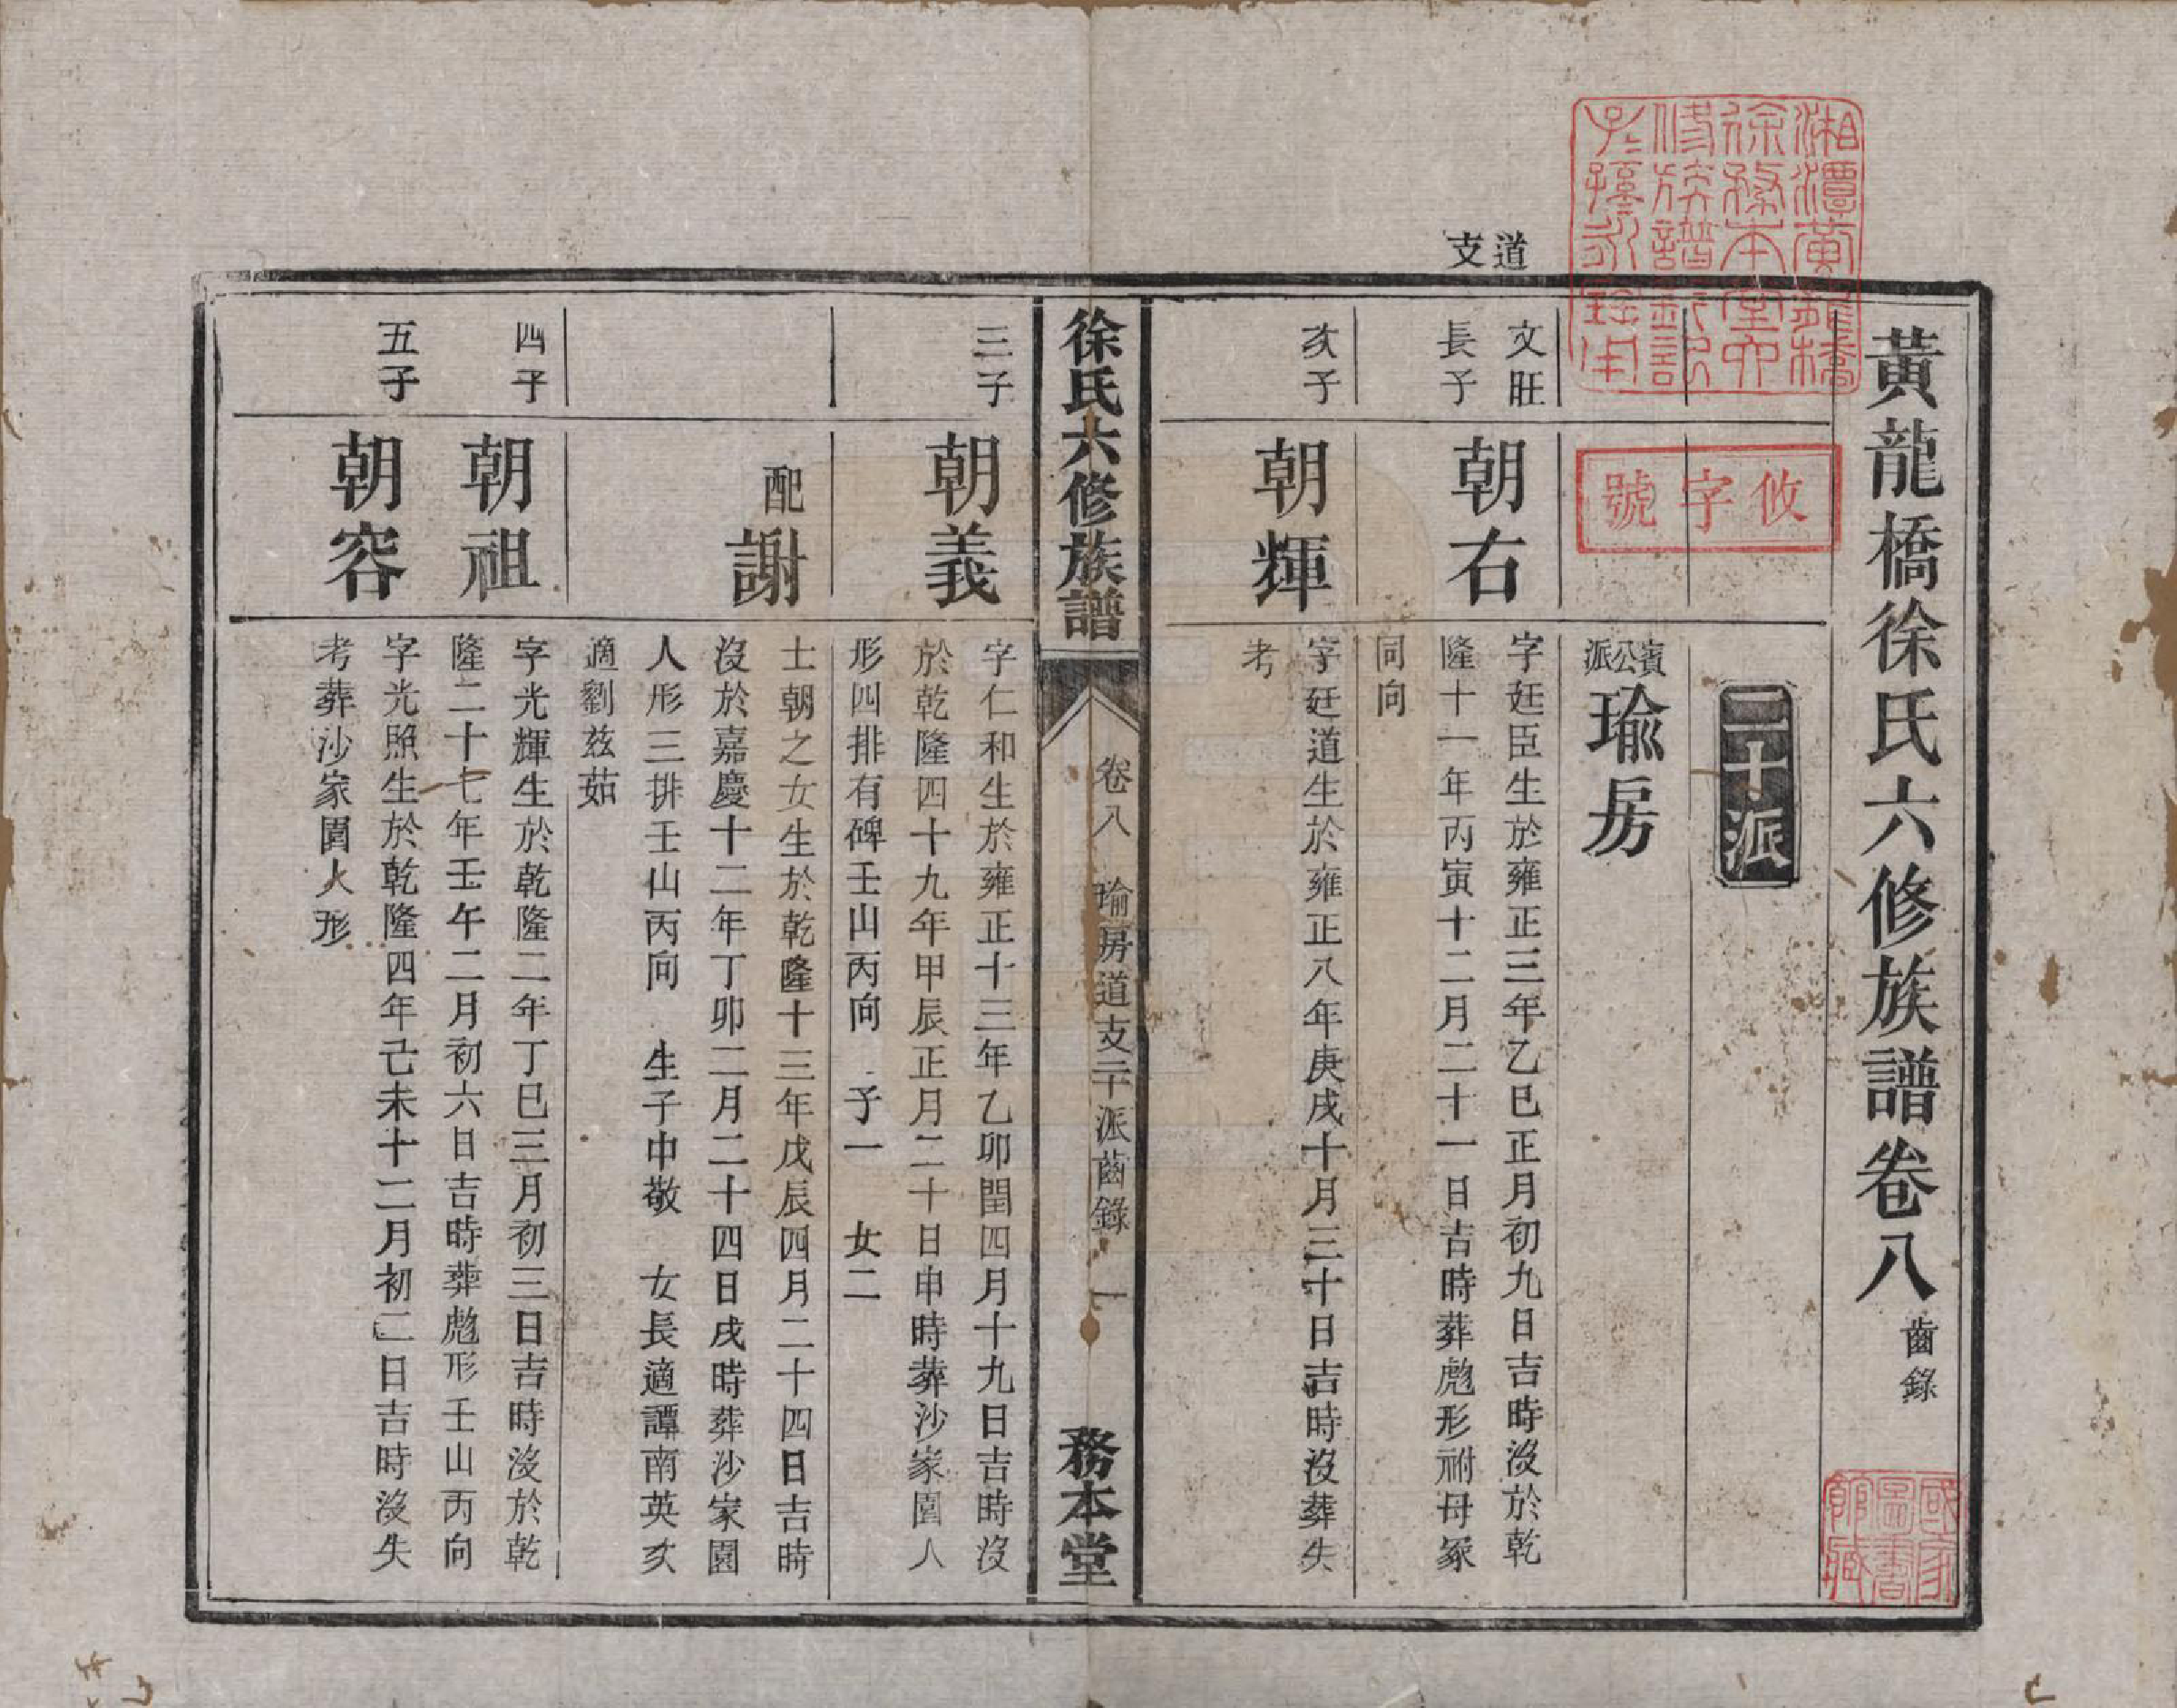 黃龍橋徐氏六修族譜卷八 齒錄
二十派
賓公派 瑜房
道支
文旺長子
朝右
字廷臣生於雍正三年乙巳正月初九日吉時沒於乾
隆十一年丙寅十二月二十一日吉時葬彪形祔母冢
同向
次子
朝輝
字廷道生於雍正八年庚戌十月三十日吉時沒葬失
考
徐氏六修族譜 卷八 瑜房道支二十派齒錄 一 務本堂
三子
朝義
字仁和生於雍正十三年乙卯閏四月十九日吉時沒
於乾隆四十九年甲辰正月二十日申時葬沙家園人
形四排有碑壬山丙向 子一 女二
配謝
士朝之女生於乾隆十三年戊辰四月二十四日吉時
沒於嘉慶十二年丁卯二月二十四日戌時葬沙家園
人形三排壬山丙向 生子中敬 女長適譚南英次
適劉茲茹
四子
朝祖
字光輝生於乾隆二年丁巳三月初三日吉時沒於乾
隆二十七年壬午二月初六日吉時葬彪形壬山丙向
五子
朝容
字光照生於乾隆四年己未十二月初二日吉時沒失
考葬沙家園人形
湘潭黃龍橋
徐務本堂六
修族譜鈐記
子孫永珍用
攸字號
國家
圖書
館藏